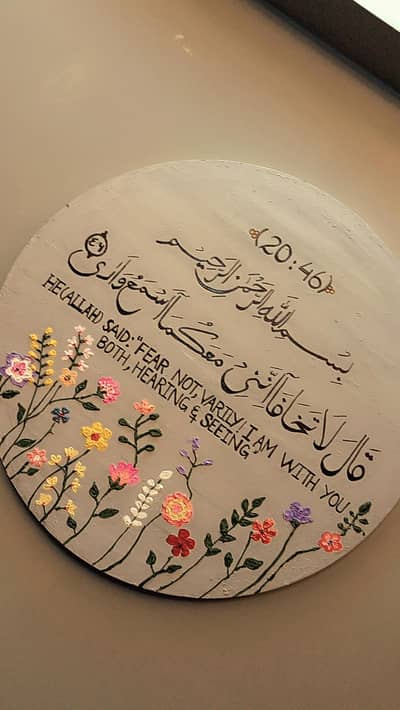 (20:46)
بِسْمِ اللهِ الرَّحْمٰنِ الرَّحِيْمِ
قَالَ لَا تَخَافَآ اِنَّنِىْ مَعَكُمَآ اَسْمَعُ وَاَرٰى ٤٦
HE(ALLAH) SAID: "FEAR NOT, VARILY! I AM WITH YOU
BOTH, HEARING & SEEING,